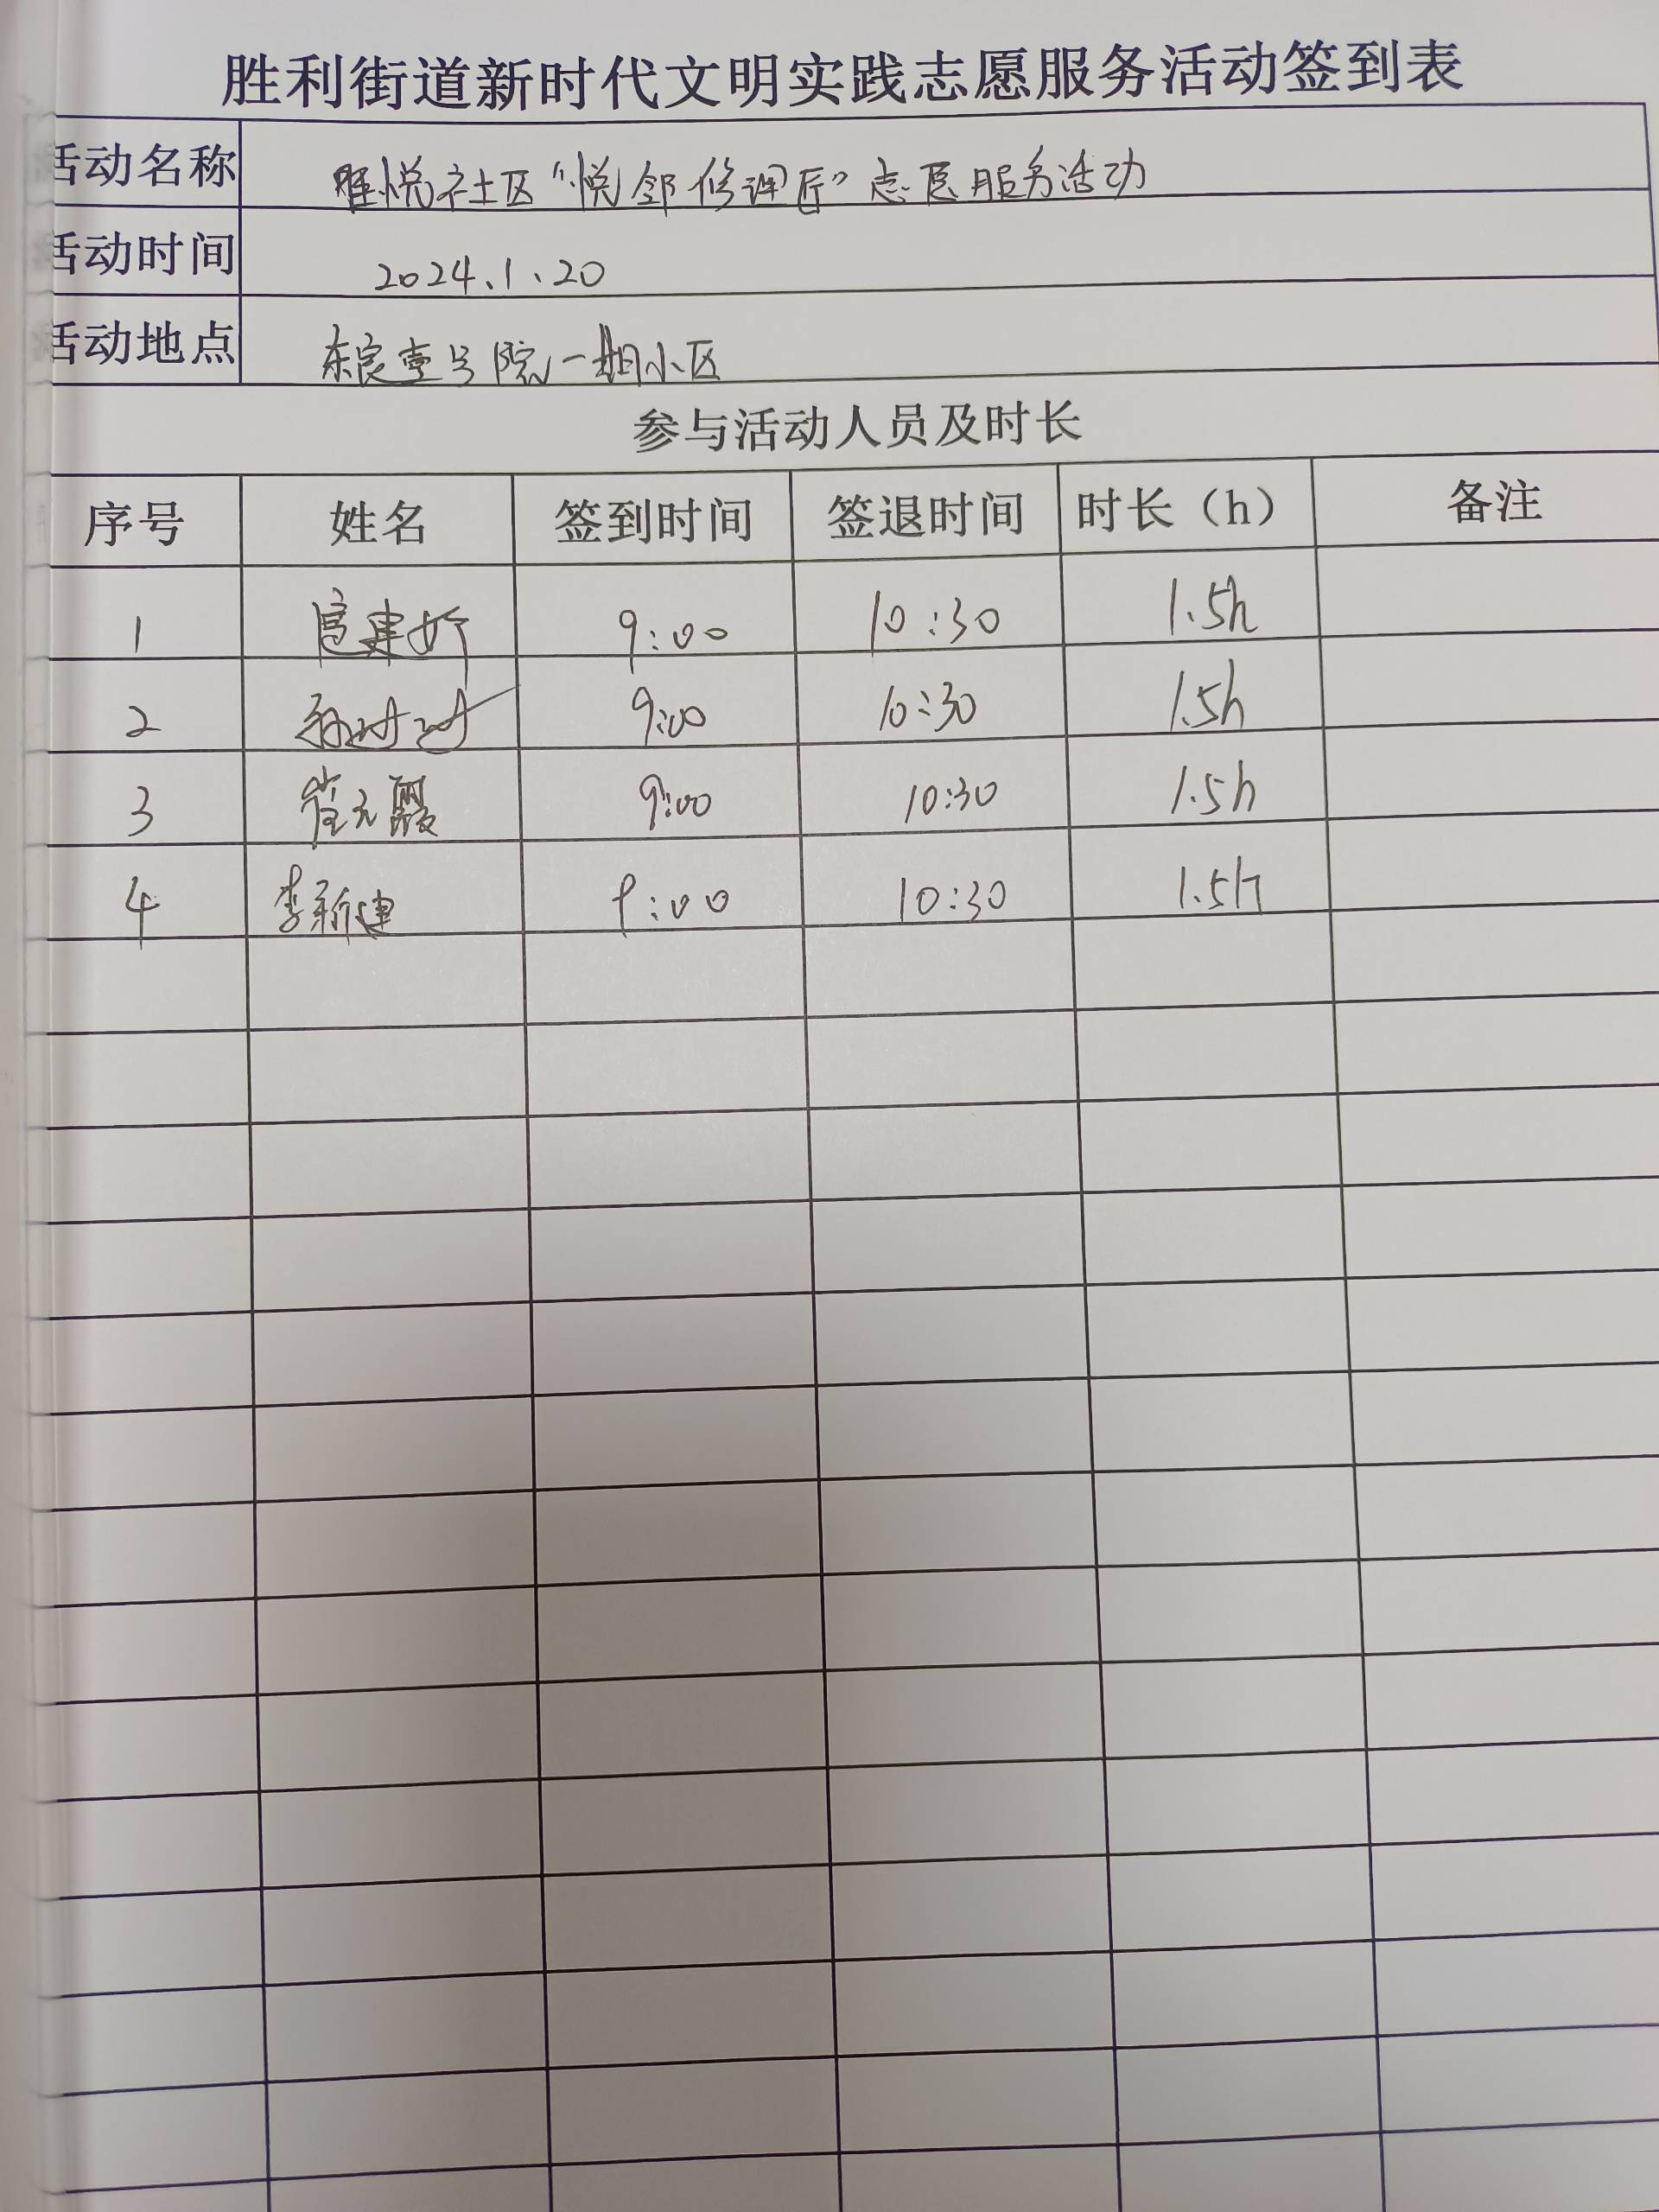 胜利街道新时代文明实践志愿服务活动签到表
活动名称 悦社区“悦邻修理匠”志愿服务活动
活动时间 2024.1.20
活动地点 东宸壹号院一期小区
参与活动人员及时长
序号 姓名 签到时间 签退时间 时长（h） 备注
1 9:00 10:30 1.5h
2 9:00 10:30 1.5h
3 崔元霞 9:00 10:30 1.5h
4 李新建 9:00 10:30 1.5h